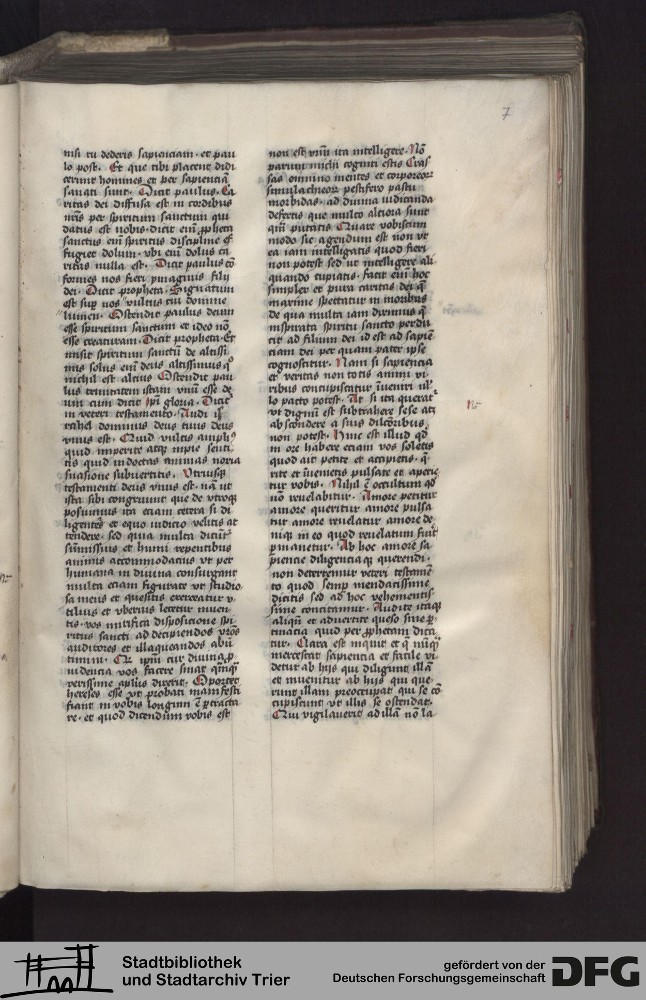 7
nisi tu dederis sapienciam · et pau
lo post · Et que tibi placent didi
cerunt homines et per sapienciā
sanati sunt · Dicit paulus · Ca
ritas dei diffusa est in cordibus
nr̄is per spiritum sanctum qui
datus est nobis · dicit eīm ꝓpheta
sanctus eīm spiritus discipline ef
fugiet dolum · vbi eīm dolus ca
ritas nulla est · Dicit paulus cō
formes nos fieri ymaginis filij
dei · Dicit propheta · Signatum
est sup nos vultus tui domine
lumen · Ostendit paulus deum
esse spiritum sanctum et ideo nō
esse creaturam · Dicit propheta · Et
misit spiritum sanctū de altissi
mis solus eīm deus altissimus qͦ
nichil est altius Ostendit pau
lus trinitatem istam vnū esse de
um cum dicit ipī gloria · Dicit
in veteri testamento · Audi isͬ
rahel dominus deus tuus deus
vnus est · Quid vultis ampliꝰ
quid imperite atqꝫ impie seuiti
tis quid indoctas animas noxia
suasione subuertitis · Vtriusqꝫ
testamenti deus vnus est · nā ut
ista sibi congruunt que de vtroqꝫ
posuimus ita eciam cetera si di
ligenter et equo iudicio velitis at
tendere · sed quia multa dicūt
sūmissius et humi repentibus
animis accommodacius ut per
humana in diuina consurgant
multa eciam figurate vt studio
sa mens et quesitis exerceatur v
tilius et vberius letetur inuen
tis · vos mirifica disposicione spi
ritus sancti ad decipiendos vr̄os
auditores et illaqueandos abu
timini · Cur ip̄m cur diuina ꝓ
uidencia vos facere sinat qm̄qꝫ
verissime aplus dixerit · Oportet
hereses esse vt probati manifesti
fiant in vobis longum ē ꝑtracta
re · et quod dicendum vobis est
non est vr̄um ita intelligere · Nō
parum michi cogniti estis Cras
sas omnino mentes et corporeoꝝ
simulachroꝝ pestifero pastu
morbidas · ad diuina iudicanda
defertis que multo altiora sunt
qm̄ putatis Quare vobiscum
modo sic agendum est non vt
ea iam intelligatis quod fieri
non potest sed ut intelligere ali
quando cupiatis · facit eīm hoc
simplex et pura caritas dei q̄
maxime spectatur in moribus
de qua multa iam diximus q̄
inspirata spiritu sancto perdu
cit ad filium dei id est ad sapiē
ciam dei per quam pater ipse
cognoscitur · Nam si sapiencia
et veritas non totis animi vi
ribus concupiscatur īueniri nulͦ
lo pacto potest · At si ita querat
vt dignū est subtrahere sese atqꝫ
abscondere a suis dilcōribus
non potest · Hinc est illud qd̄
in ore habere eciam vos soletis
quod ait petite et accipietis · q̄
rite et īuenietis pulsate et aperie
tur vobis · Nihil ē occultum qd̄
nō reuelabitur · Amore petitur
amore queritur amore pulsa
tur amore reuelatur amore de
niqꝫ in eo quod reuelatum fuīt
ꝑmanetur · Ab hoc amore sa
piencie diligenciaqꝫ querendi ·
non deterremur veteri testamē
to quod semꝑ mendacissime
dicitis sed ad hoc vehementis
sime concitamur · Audite itaqꝫ
aliqn̄ et aduertite queso sine ꝑ
tinacia quid per ꝓphetam dica
tur · Clara est inquit et q̄ nūqꝫ
marcescat sapiencia et facile vi
detur ab hijs qui diligunt illā
et inuenitur ab hijs qui que
runt illam preoccupat qui se cō
cupiscunt vt illis se ostendat ·
Qui vigilauerit ad illā nō la
Stadtbibliothek
und Stadtarchiv Trier
gefördert von der
Deutschen Forschungsgemeinschaft
DFG